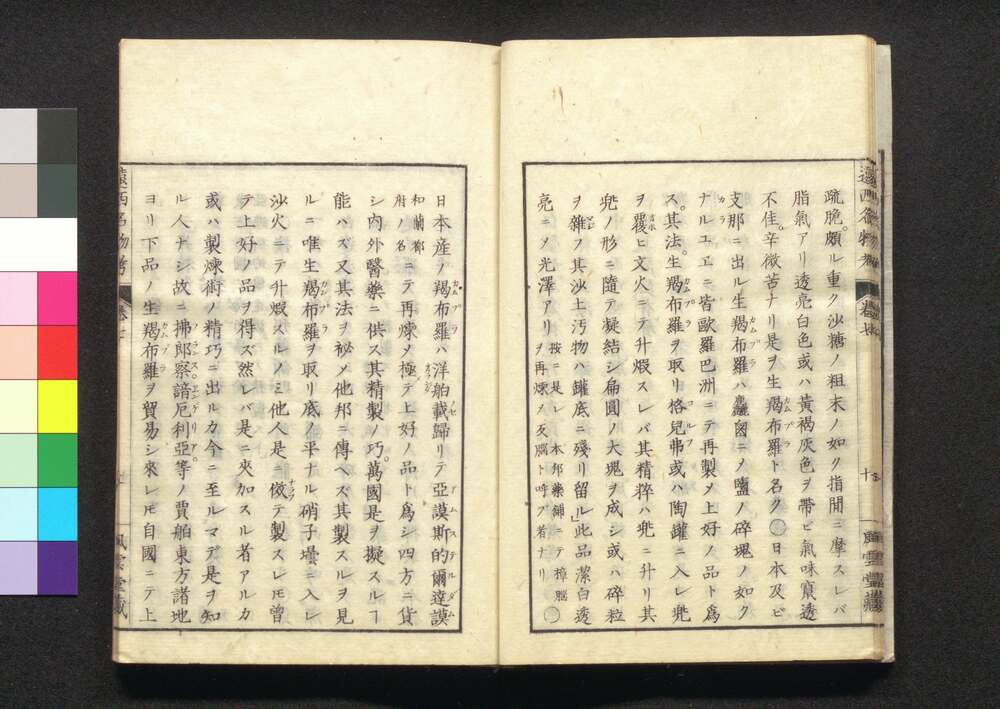 疏脆頗ル重ク沙糖ノ粗末ノ如ク指間ニ摩スレバ
脂氣アリ透亮白色或ハ黃褐灰色ヲ帶ビ氣味竄透
不佳辛微苦ナリ是ヲ生羯布羅ト名ク○日本及ビ
支那ニ出ル生羯布羅ハ麁鹵ニメ鹽ノ碎塊ノ如ク
ナルユヱニ皆歐羅巴洲ニテ再製メ上好ノ品ト爲
ス其法生羯布羅ヲ取リ格兒弗或ハ陶罐ニ入レ兜
兜ヲ覆ヒ文火ニテ升煆スレバ其精粹ハ兜ニ升リ其
兜ノ形ニ隨テ凝結シ扁圓ノ大塊ヲ成シ或ハ碎粒
ヲ雜フ其沙土汚物ハ罐底ニ殘リ留ル此品潔白透
亮ニメ光澤アリ按ニ是レ本邦藥鋪ニテ樟腦ヲ再煉メ反腦ト呼ブ者ナリ○
日本產ノ羯布羅ハ洋舶載歸リテ亞謨斯的爾達謨
和蘭都府ノ名ニテ再煉メ極テ上好ノ品ト爲シ四方ニ貨
シ內外醫藥ニ供ス其精製ノ巧萬國是ヲ擬スルヿ
能ハズ又其法ヲ祕メ他邦ニ傳ヘズ其製スルヲ見
ルニ唯生羯布羅ヲ取リ底ノ平ナル硝子壜ニ入レ
沙火ニテ升煆スルノミ他人是ニ傚テ製スレドモ曾
テ上好ノ品ヲ得ズ然レバ是ニ夾加スル者アルカ
或ハ製煉術ノ精巧ニ出ルカ今ニ至ルマデ是ヲ知
ル人ナシ故ニ拂郎察諳厄利亞等ノ賈舶東方諸地
ヨリ下品ノ生羯布羅ヲ貿易シ來レドモ自國ニテ上
遠西名物考
卷七
風雲堂藏